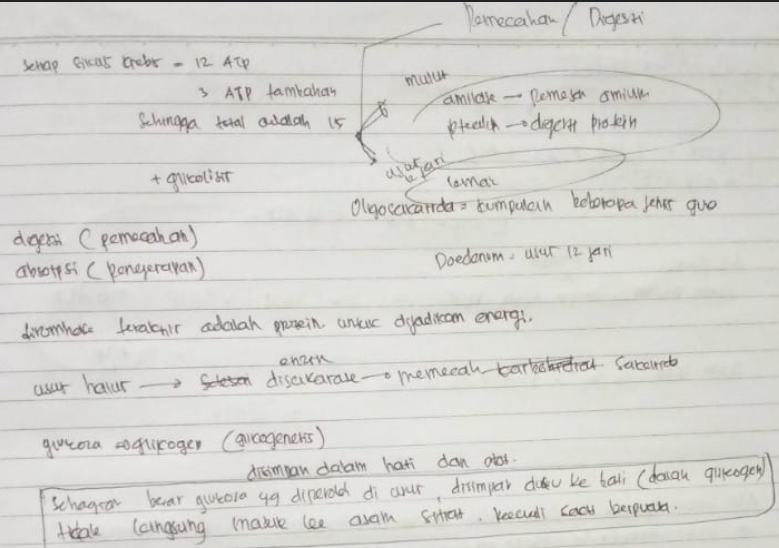 Pemecahan / Digesti
Setiap siklus krebs = 12 ATP
3 ATP tambahan
Sehingga total adalah 15
+ glikolisis
mulut
amilase → pemecah amilum
→ digesti protein
usus 12 jari
lemak
Oligosakarida = kumpulan beberapa jenis gula
digesti (pemecahan)
absorpsi (penyerapan)
Doedenum = usus 12 jari
dirombak terakhir adalah protein untuk dijadikan energi.
enzim
usus halus → disakarase → memecah karbohidrat
glukosa → glikogen (glikogenesis)
disimpan dalam hati dan otot.
Sebagian besar glukosa yg diperoleh di usus, disimpan dulu ke hati (dalam glikogen)
tidak langsung masuk ke asam sitrat, kecuali saat berpuasa.